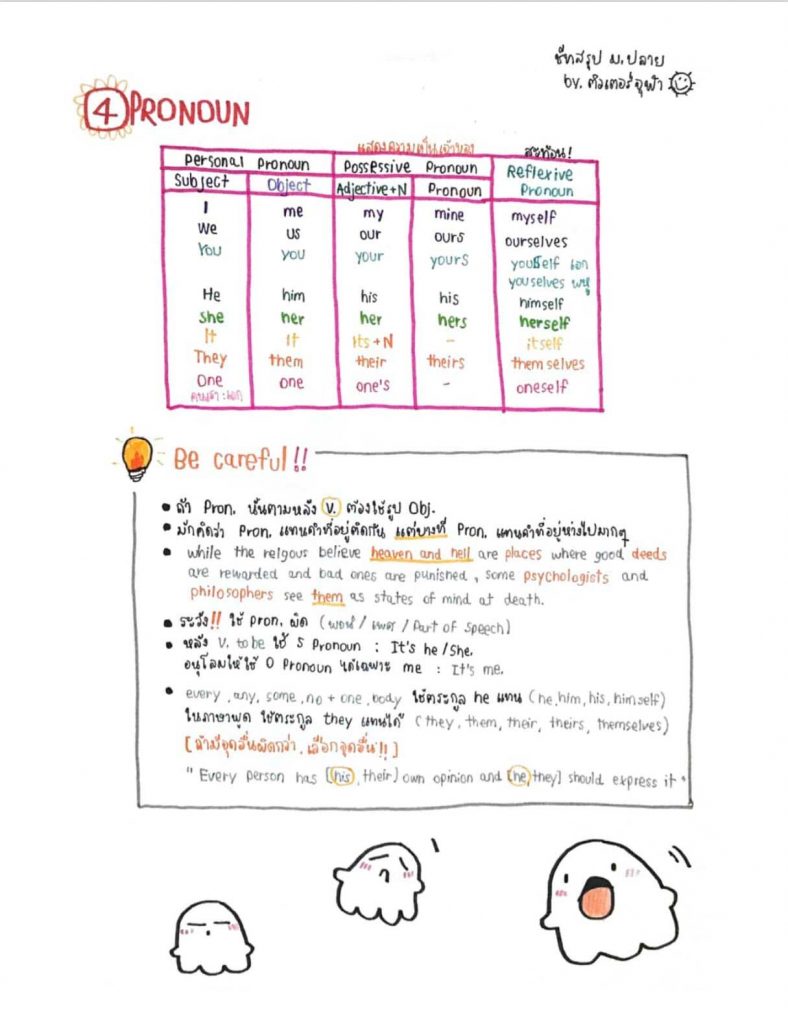 ชีทสรุป ม.ปลาย
by. ติวเตอร์จุฬา
4 PRONOUN
แสดงความเป็นเจ้าของ สะท้อน!
Personal Pronoun Possessive Pronoun Reflexive Pronoun
Subject Object Adjective+N Pronoun
I me my mine myself
We us our ours ourselves
You you your yours yourself เอก
youselves พหู
He him his his himself
She her her hers herself
It It Its+N - itself
They them their theirs themselves
One one one's - oneself
Be careful!!
ถ้า Pron. นั้นตามหลัง V. ต้องใช้รูป Obj.
มักคิดว่า Pron. แทนคำที่อยู่ติดกัน แต่บางที Pron. แทนคำที่อยู่ห่างไปมากๆ
while the relgous believe heaven and hell are places where good deeds
are rewarded and bad ones are punished, some psychologists and
philosophers see them as states of mind at death.
ระวัง!! ใช้ Pron. ผิด (พจน์/เพศ/Part of Speech)
หลัง V. to be ใช้ S Pronoun : It's he/She.
อนุโลมให้ใช้ O Pronoun ได้เฉพาะ me : It's me.
every, any, some, no + one, body ใช้ตระกูล he แทน (he, him, his, himself)
ในภาษาพูด ใช้ตระกูล they แทนได้ (they, them, their, theirs, themselves)
[ถ้ามีจุดอื่นผิดกว่า, เลือกจุดอื่น!!]
"Every person has [his, their] own opinion and [he, they] should express it"